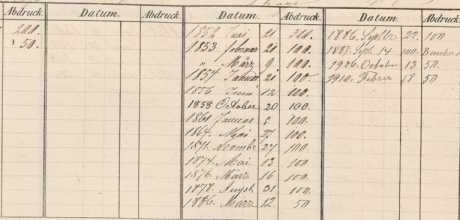 Abdruck. Datum. Abdruck. Datum. Abdruck. Datum. Abdruck
200. 1852 21 200. 1886. 22. 100
50. 1853 Februar 21 100. 14 100.
" März 9 100. 1906. October 13 50
1854 Januar 21 100. 1910. Februar 18 50
12 100
1858 October 20 100.
Januar 8 100.
1864. Mai 100.
1871. Decembr 27 100.
1874. Mai 13 100
1876 März 16 100
1878. August 31 100.
1886. März 12 50